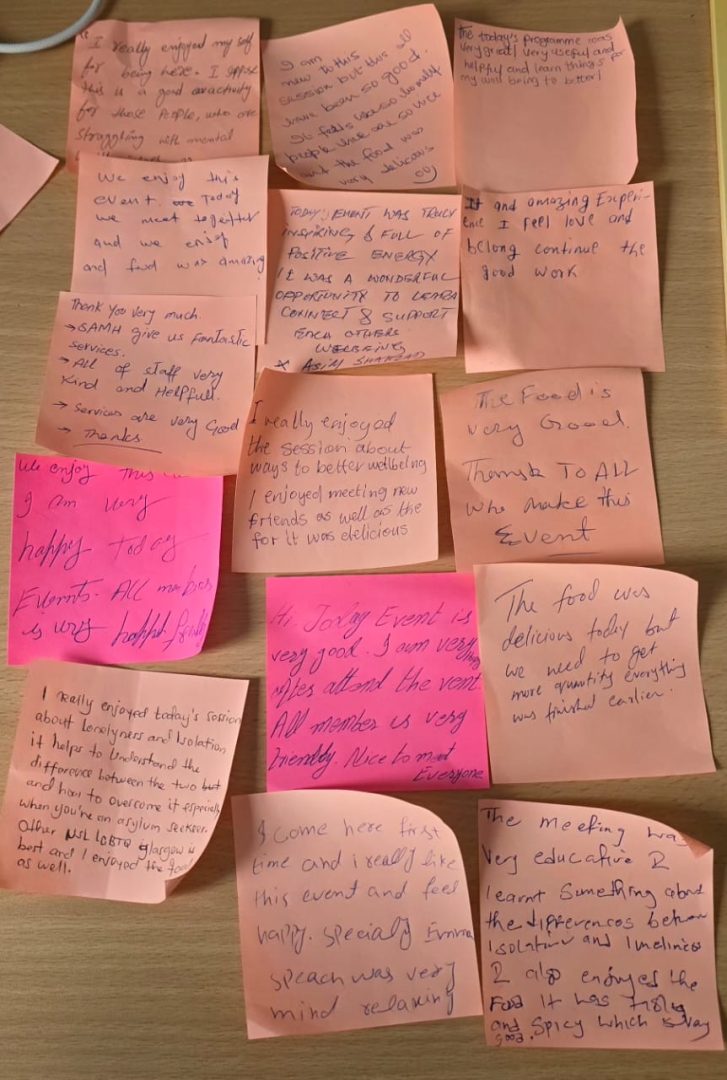 "I really enjoyed my self
for being here. I
this is a good
for those People, who are
struggling with mental
I am
new to this
session but this all
have been so good.
It feels like so
people here are so nice
and the food was
very delicious
The today's programme was
very great! very useful and
helpful and learn things for
my well being to better!
We enjoy this
event. Today
we meet together
and we enjoy
and food was amazing
TODAY, EVENT WAS TRULY
INSPIRING & FULL OF
POSITIVE ENERGY
IT WAS A WONDERFUL
OPPORTUNITY TO LEARN
CONNECT & SUPPORT
EACH OTHERS
WELLBEING
It and amazing Experi-
ence I feel love and
belong continue the
good work
Thank you very much.
→ SAMH give us Fantastic
services.
→ All of staff very
Kind and Helpfull.
→ Services are very Good
→ Thanks
I really enjoyed
the session about
ways to better wellbeing
I enjoyed meeting new
friends as well as the
for it was delicious
The Food is
very Good.
Thansk To ALL
who make this
EVENT
We enjoy this
I am very
happy today
Events. All members
is very happy
Hi. Today Event is
very good. I am very
after attend the vent
All member is very
friendly. Nice to meet
Everyone
The food was
delicious today but
we need to get
more quantity everything
was finished earlier.
I really enjoyed today's session
about lonelyness and Isolation
it helps to Understand the
difference between the two but
and how to overcome it especially
when you're an asylum seekser.
Other LGBTQ glasgow is
best and I enjoyed the food
as well.
I come here first
time and i really like
this event and feel
happy. specially
speach was very
mind relaxing
The meeting was
very educative I
learnt something about
the differences between
isolation and loneliness
I also enjoyed the
Food It was
and spicy which is very
good.